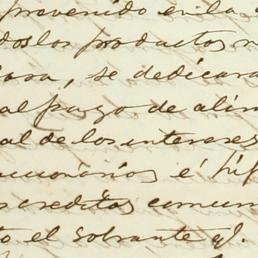 prevenido en la
dos los productos
casa, se dedicara
al pago de alim
al de los intereses
cionarios é hip
s creditos comun
to el sobrante q.